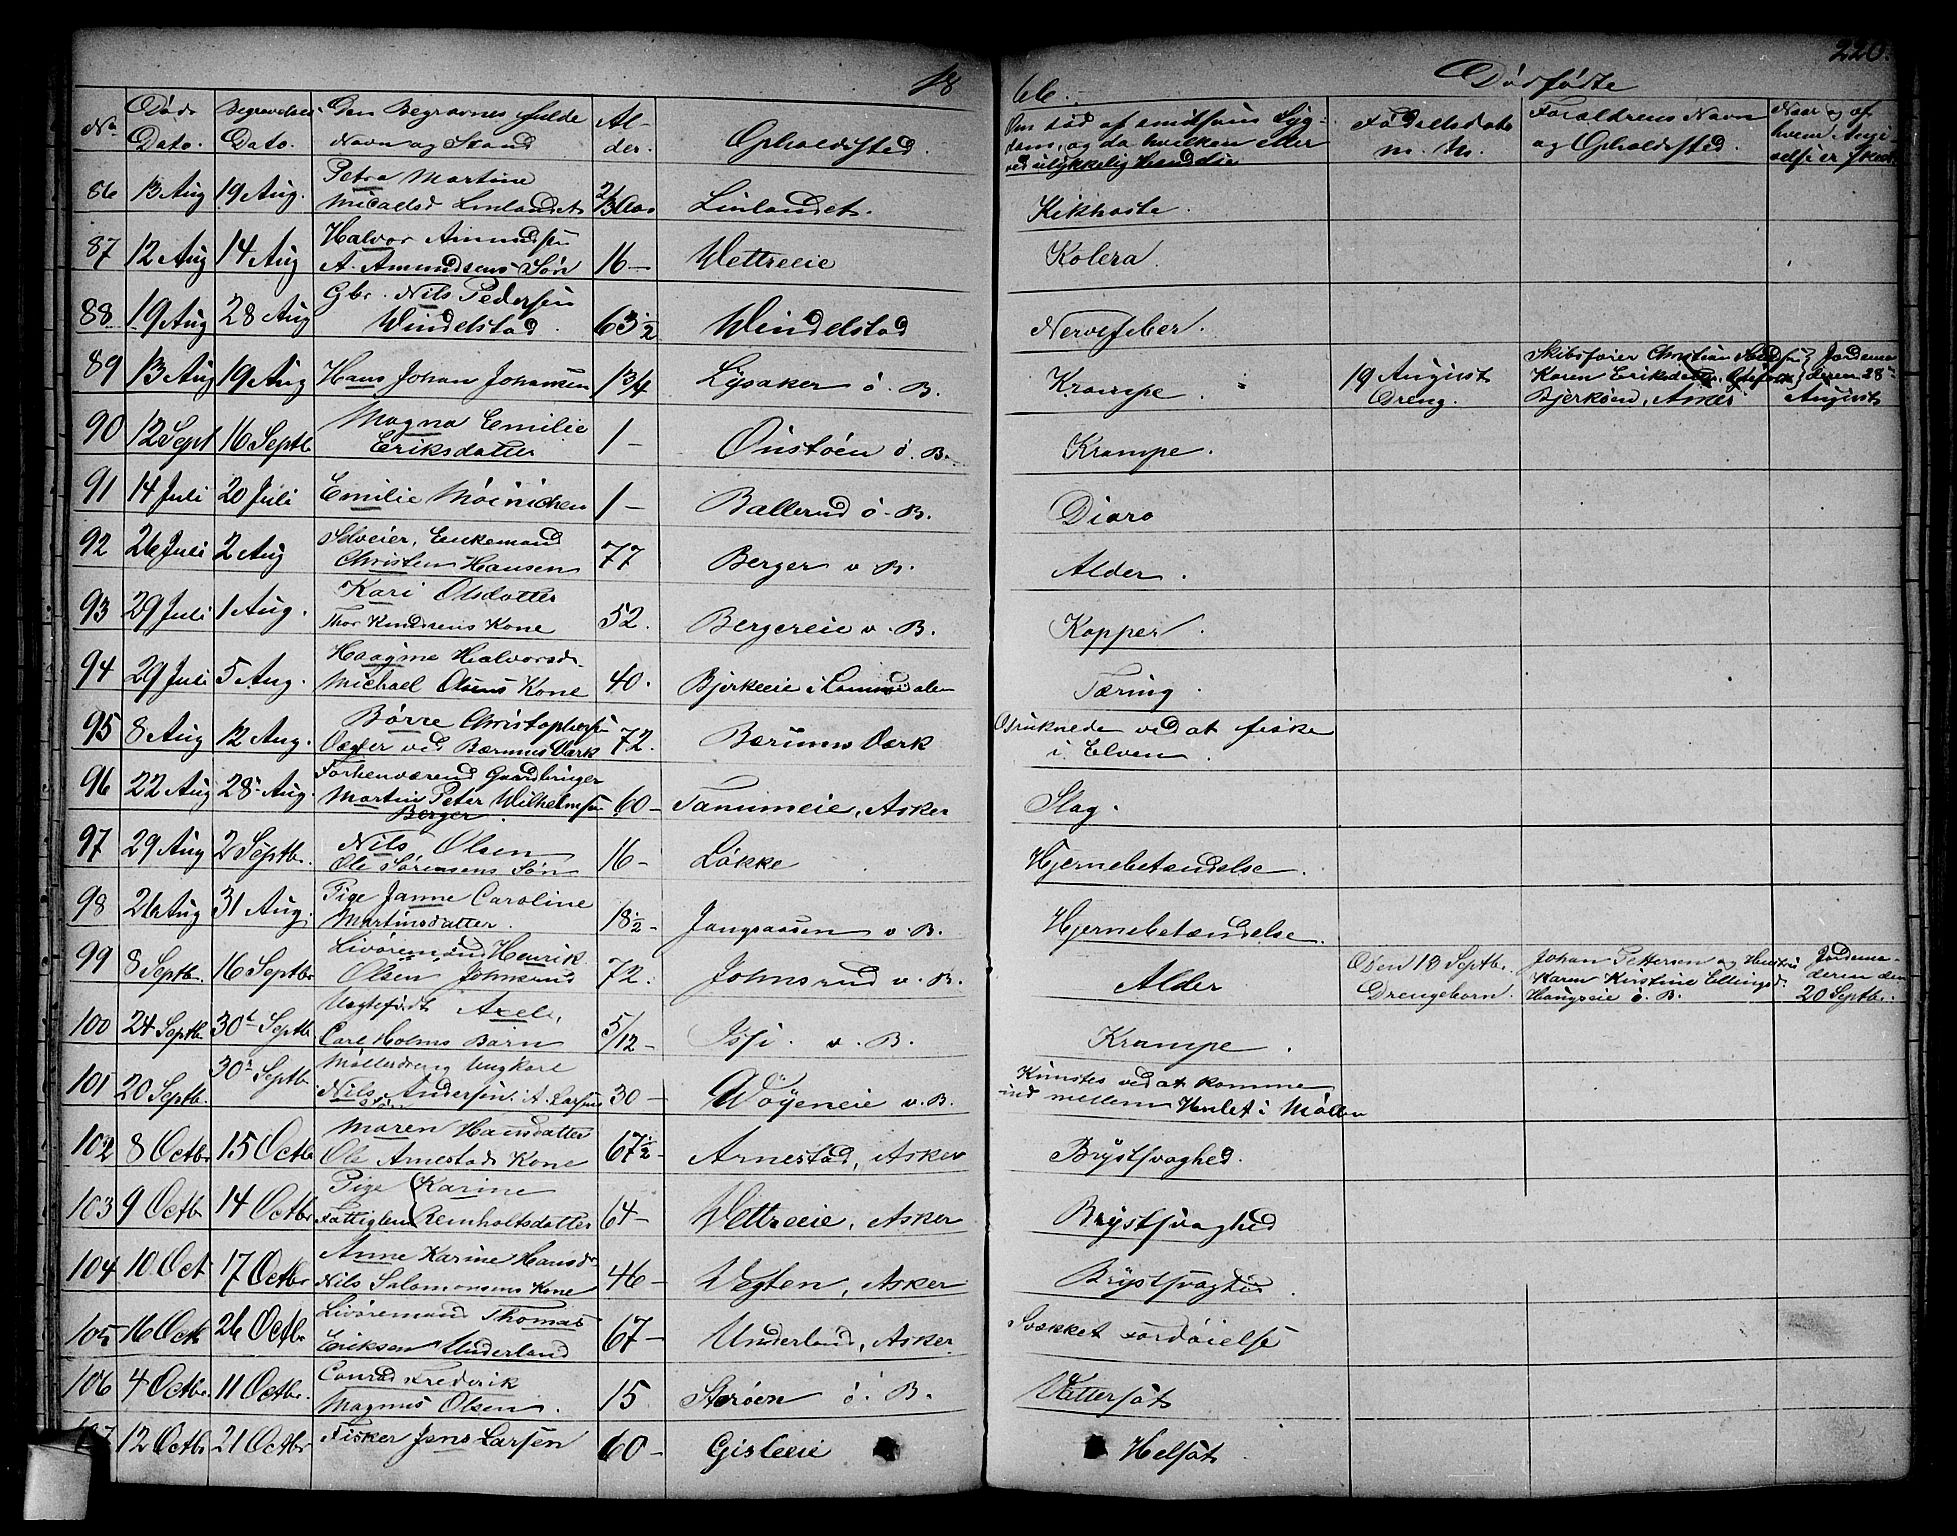 18 66. Dødfødte 220.
No. Døds Dato. Begravelses Dato. Den Begravnes fulde Navn og Stand Alder. Opholdssted. Om død af smitsom Sygdom, og da hvilken eller ved ulykkelig Hændelse Fødselsdato Forældrenes Navn og Opholdssted. Naar og af hvem Anmeldelse er skeet
86 13 Aug 19 Aug. Petra Martine
Micaelsd Linlandet Linlandet. Kikhoste.
87 12 Aug 14 Aug Halvor Amundsen
A. Amundsens Søn 16 — Wettreeie Kolera.
88 19 Aug 28 Aug Gbr. Nils Pedersen
Windelstad. 63 1/2 Windelstad Nervefeber.
89 13 Aug 19 Aug Hans Johan Johansen 1 3/4 Lysaker ö. B. Krampe. 19 August
Dreng. Skibsfører Christian
Karen Eriksdatter
Bjerkøen, Asker Jordemoderen 28de
August
90 12 Sept 16 Septb Magna Emilie
Eriksdatter 1 — Onstøen ö. B. Krampe.
91 14 Juli 20 Juli Emilie Møinichen 1 — Ballerud ö. B. Diare
92 26 Juli 2 Aug Selveier, Enkemand
Christen Hansen 77 Berger v B. Alder.
93 29 Juli 1 Aug. Kari Olsdatter
Thor Knudsens Kone 52. Bergereie v. B. Kopper.
94 29 Juli 5 Aug. Haagine Halvorsd.
Michael Olsens Kone 40. Bjerkeeie i Lommedalen Tæring.
95 8 Aug 12 Aug. Børre Christophersen
Vægter ved Bærums Værk 72. Bærums Værk Druknede ved at fiske
i Elven.
96 22 Aug 28 Aug. Forhenværend Gaardbruger
Martin Peter Wilhelmsen
Berger. 60 — Tanumeie, Asker Slag.
97 29 Aug 2 Septb. Nils Olsen
Ole Sørensens Søn 16 — Løkke Hjernebetændelse.
98 26 Aug 31 Aug. Pige Janne Caroline
Martinsdatter. 18 1/2 — Jongsaasen v. B. Hjernebetændelse.
99 8 Septb. 16 Septbr Livøremand Henrik
Olsen Johnsrud 72. Johnsrud v. B. Alder Den 13 Septb.
Drengebarn. Johan Pettersen og Hustru
Karen Kirstine Ellingsd.
Haugseie ö. B. Jordemoderen den
20 Septbr.
100 24 Septb. 30t Septb Uægtefødt Axel,
Carl Holms Barn 5/12 — Issi. v. B. Krampe.
101 20 Septb. 30te Septb Møllerdreng Ungkarl
Nils Andersen. A. Larsens Søn 30 — Wøyeneie v. B. Knustes ved at komme
ind mellem Hulet i Møllen
102 8 Octbr 15 Octb Maren Hansdatter
Ole Arnestads Kone 67 1/2 — Arnestad, Asker Brystsvaghed.
103 9 Octb 14 Octbr Pige Karine
Fattiglem Reinholtsdatter 64 — Wettreeie, Asker Brystsvaghed
104 10 Oct 17 Octbr Anne Karine Hansdr
Nils Salomonsens Kone 46 — Vegten, Asker Brystsvaghed.
105 16 Octb 26 Octbr Livøremand Thomas
Eriksen Underland 67 — Underland, Asker. Svækket Fordøielse
106 4 Octbr. 11 Octbr. Conrad Frederik
Magnus Olsen. 15 Størøen ö. B. Vattersot
107 12 Octb 21 Octbr Fisker Jens Larsen 60 — Gisleeie Helsot